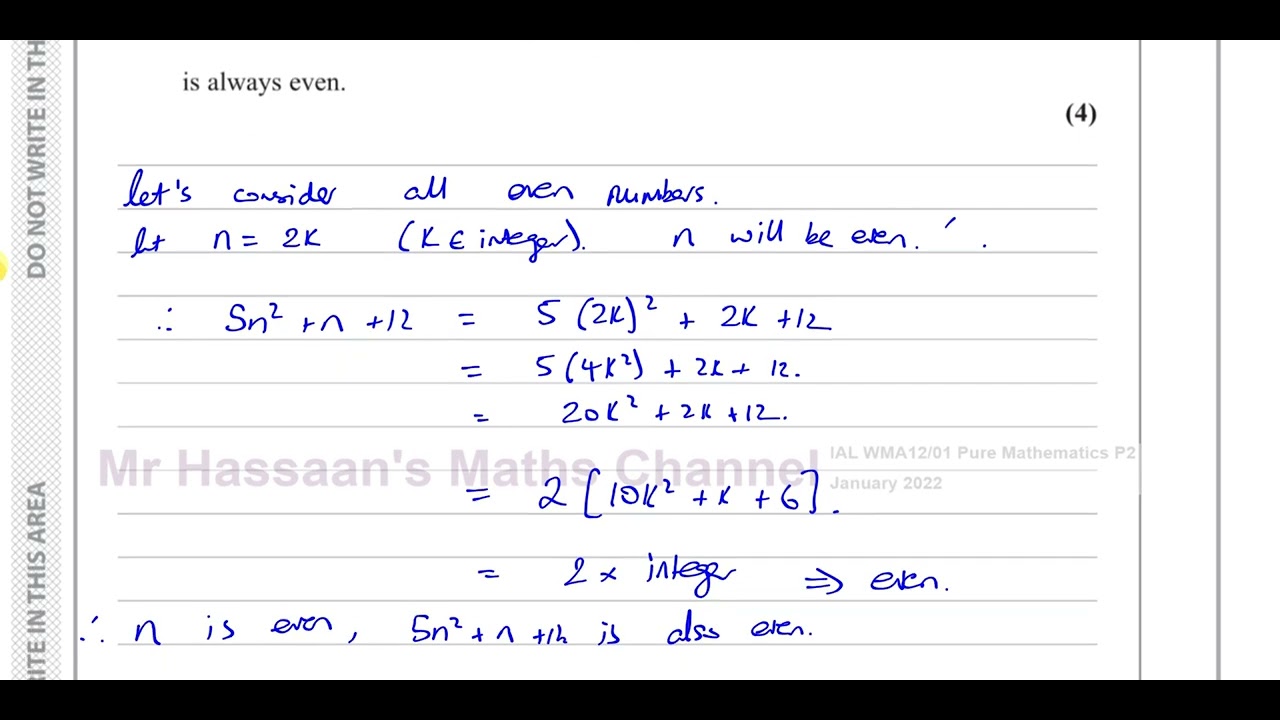 is always even.
(4)
let's consider all even numbers.
let n = 2K (K ∈ integer). n will be even.
∴ 5n² + n + 12 = 5(2K)² + 2K + 12
= 5(4K²) + 2K + 12.
= 20K² + 2K + 12.
Mr Hassaan's Maths Channel
IAL WMA12/01 Pure Mathematics P2
January 2022
= 2[10K² + K + 6].
= 2 × integer ⇒ even.
∴ n is even, 5n² + n + 12 is also even.
DO NOT WRITE IN TH
RITE IN THIS AREA